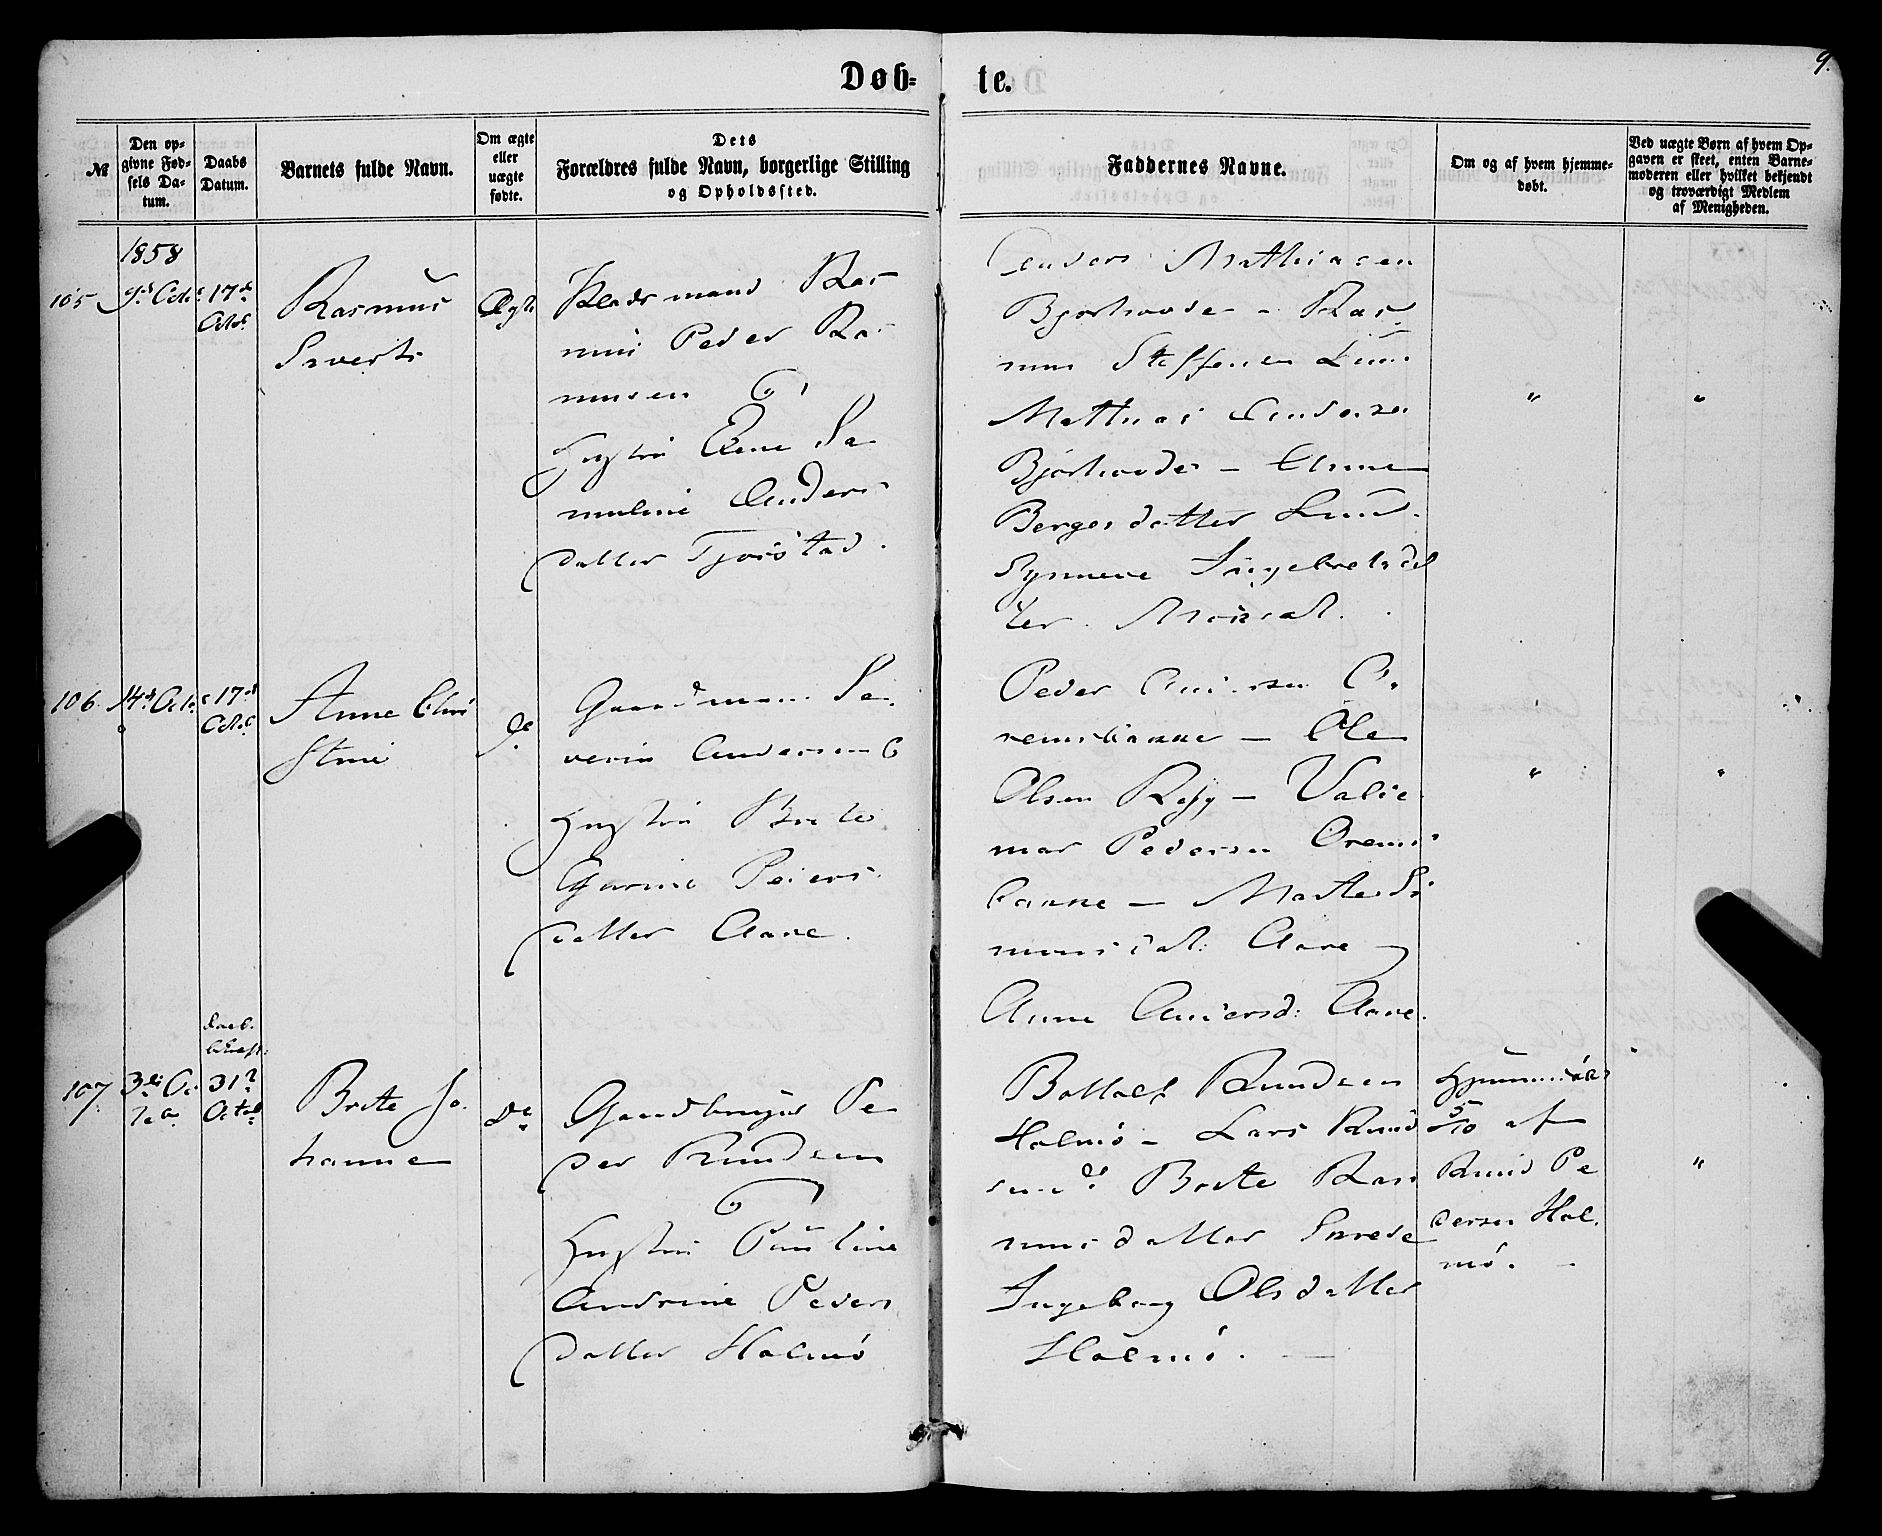 Døb-
te.
9.
№
Den op-
givne Fød-
sels Da-
tum.
Daabs
Datum.
Barnets fulde Navn.
Om ægte
eller
uægte
fødte.
Dets
Forældres fulde Navn, borgerlige Stilling
og Opholdssted.
Faddernes Navne.
Om og af hvem hjemme-
døbt.
Ved uægte Børn af hvem Op-
gaven er skeet, enten Barne-
moderen eller hvilket bekjendt
og troværdigt Medlem
af Menigheden.
1858
105
17de
Octob
Rasmus
Sivert
Ægte
Pladsmand Ras
mus Peder Ras
musen
Hustru Ane Sa
muline Anders
datter Tjørstad.
Anders Mathiasen
Bjørhovde - Ras
mus Steffensen Lund
Mathias Andersen
Bjørhovde - Anne
Bergesdatter Lund.
Synneve Ingebretsdat
ter
"
"
106
14de Octo
17de
Octob
Anne Chri
stine
de
Gaardmand Se
verin Andersen
Hustru Brite
Peders
datter Aare.
Peder Andersen O
remsbakke - Ole
Olsen - Valde
mar Pedersen Orems
bakke - Marte Si
monsdat: Aare
Anne Andersd: Aare.
"
"
107
3die Oc
tob
31te
Octob
Brite Jo
hanne
de
Gaardbruger Pe
der Knudsen
Hustru Pauline
Andrine Peders
datter Holmø
Bottolf Knudsen
Holmø - Lars Knud
sen do Brite Ras
musdatter
Ingeborg Olsdatter
Holmø.
Hjemmedøbt
5/10 af
Knud Pe
dersen Hol
mø.
"